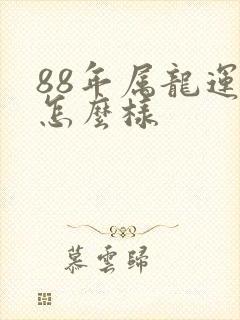 88年属龍運
怎麼樣
慕雲歸